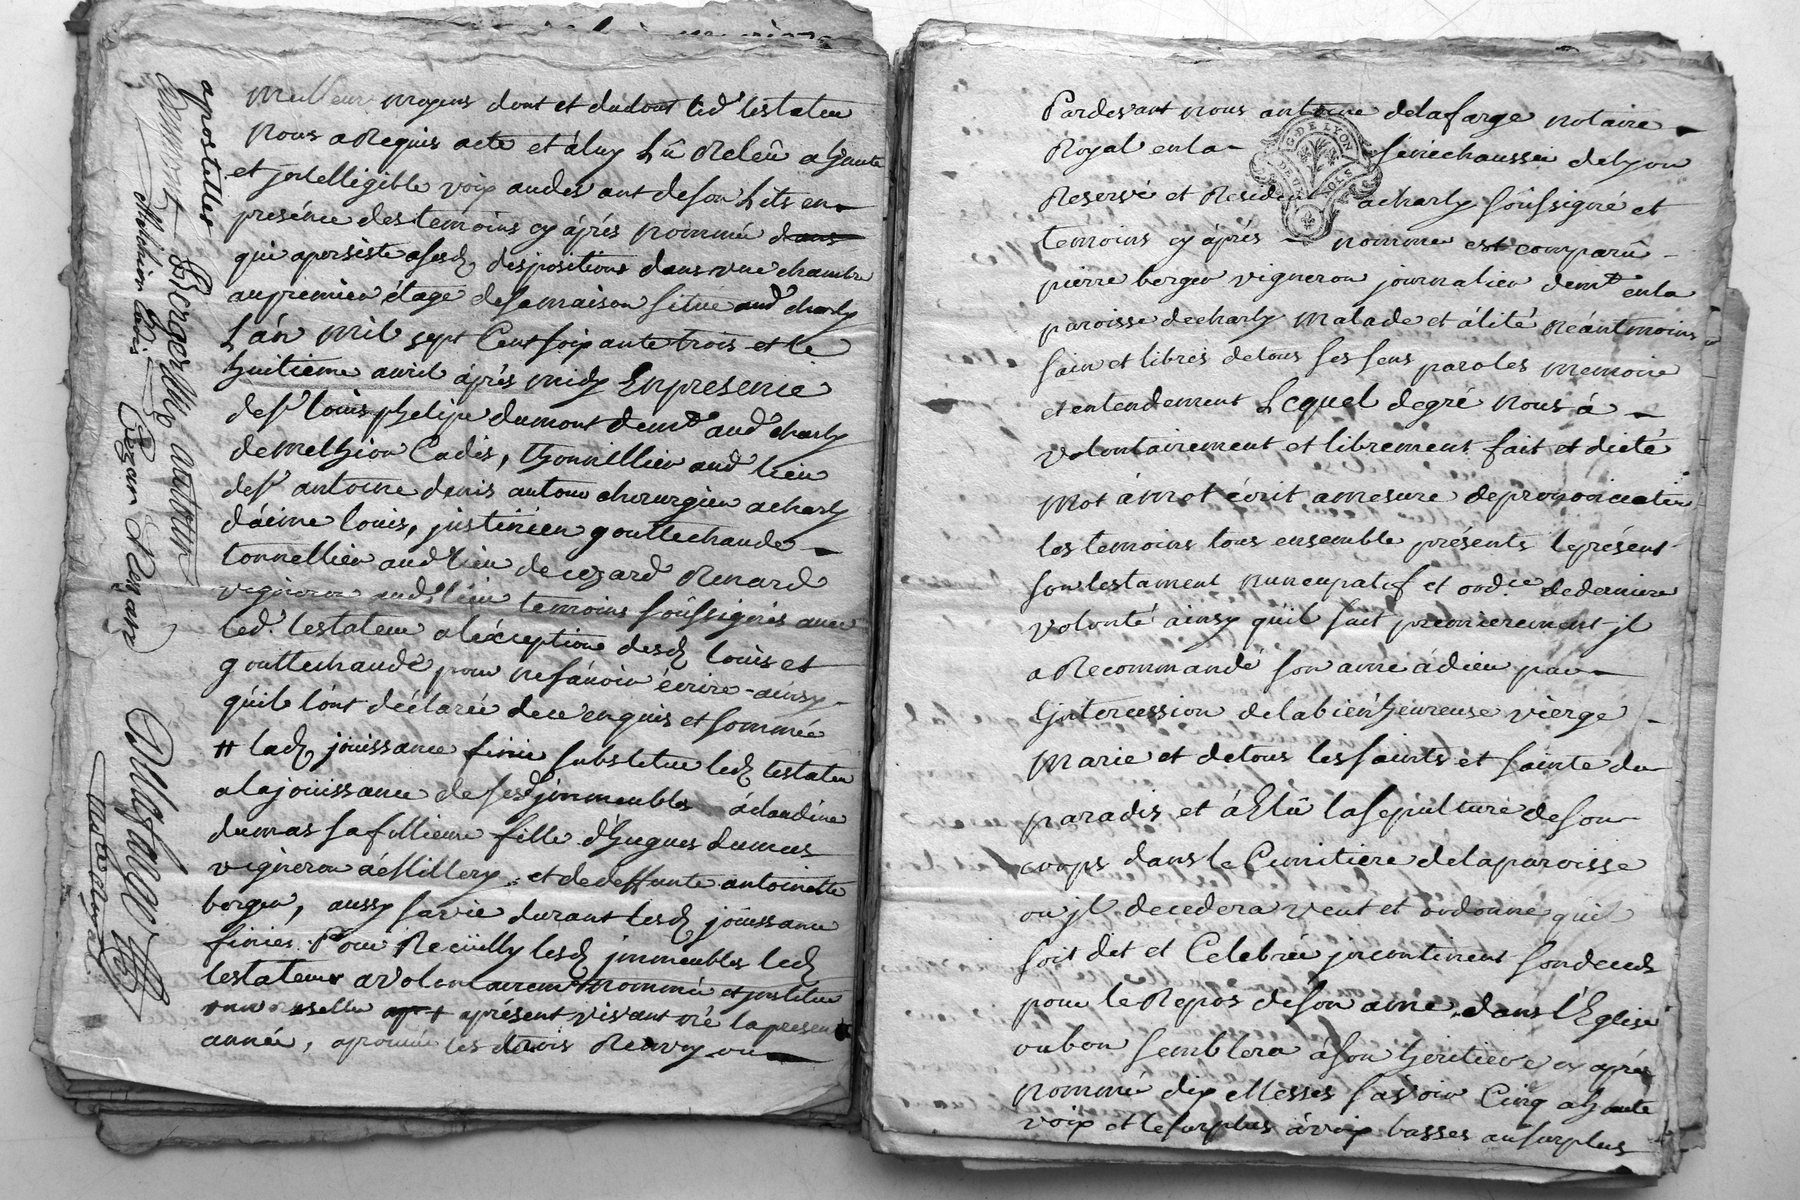 meilleur moyens dont et dudout led' testateu
nous a Requis acte et à luy Lû Relëu a haute
et jntelligible voix audev ant deson Lits en
présénce des temoins cy áprés nommée dans
qui apersiste asesd. despositions dans une chambre
au premier étage desamaison située aud' charly
L'an mil sept Cent soix ante trois et le
huitieme avril áprés midy En presence
de sr. louis phelipe dumont demt. aud' charly
de melhion Cadis, thonnellier aud' lieu
de sr. antoine denis autour cherurgien acharly
d'aime louis, justinien gouttechaude
tonnellier aud' lieu de cezard Renard
vigneron aud' lieu temoins soussignés avec
led. testateur a l'éxception desd. louis et
gouttechaude pour ne sávoir écrire ainsy
qu'ils l'ont déclarée de ce enquis et sommée
# lad. jouissance finie substitue led. testateu
a la joüissance de sesd. jmmeubles à claudine
dumas sa filleule fille d'hugues dumas
vigneron à Millery, et de deffunte antoinette
berger, aussy sa vie durant lesd. joüissance
finies. Pour Recüilly lesd. jmmeubles led.
testateur a volontairem' nommée et jnstitue
à présent vivant né la presen
année, aprouvée les Renvoy ou
apostilles
Dumont Berger autour
Melshion Cadis
Cézar Renard
Delafarge
Pardevant nous antoine delafarge notaire
Royal en la senechaussée de lyon
G. DE LYON
DEUX SOLS
Reservé et Residen a charly soussigné et
temoins cy áprés nomme est comparû
pierre berger vigneron journalier demt. en la
paroisse de charly malade et álité néantmoins
sain et libres de tous ses sens paroles memoire
et entendement Lequel de gré nous á
volontairement et librement fait et dicté
mot á mot écrit a mesure de prononciation
les temoins tous ensemble présents le présent
son testament nuncupatif et ord.ce de derniere
volonté ainsy qu'il suit premierement jl
a Recommandé son ame á dieu par
L'jntercession de la bien heureuse vierge
Marie et de tous les saints et sainte du
paradis et á Elû la sepulture de son
corps dans le Cimitiere de la paroisse
ou jl decedera veut et ordonne qu'il
soit dit et Celebrée jncontinent son decéds
pour le Repos de son ame, dans l'Eglise
ou bon semblera á son héritiere cy aprés
nommée dix Messes sávoir Cinq a haute
voix et le surplus á voix basses au surplus